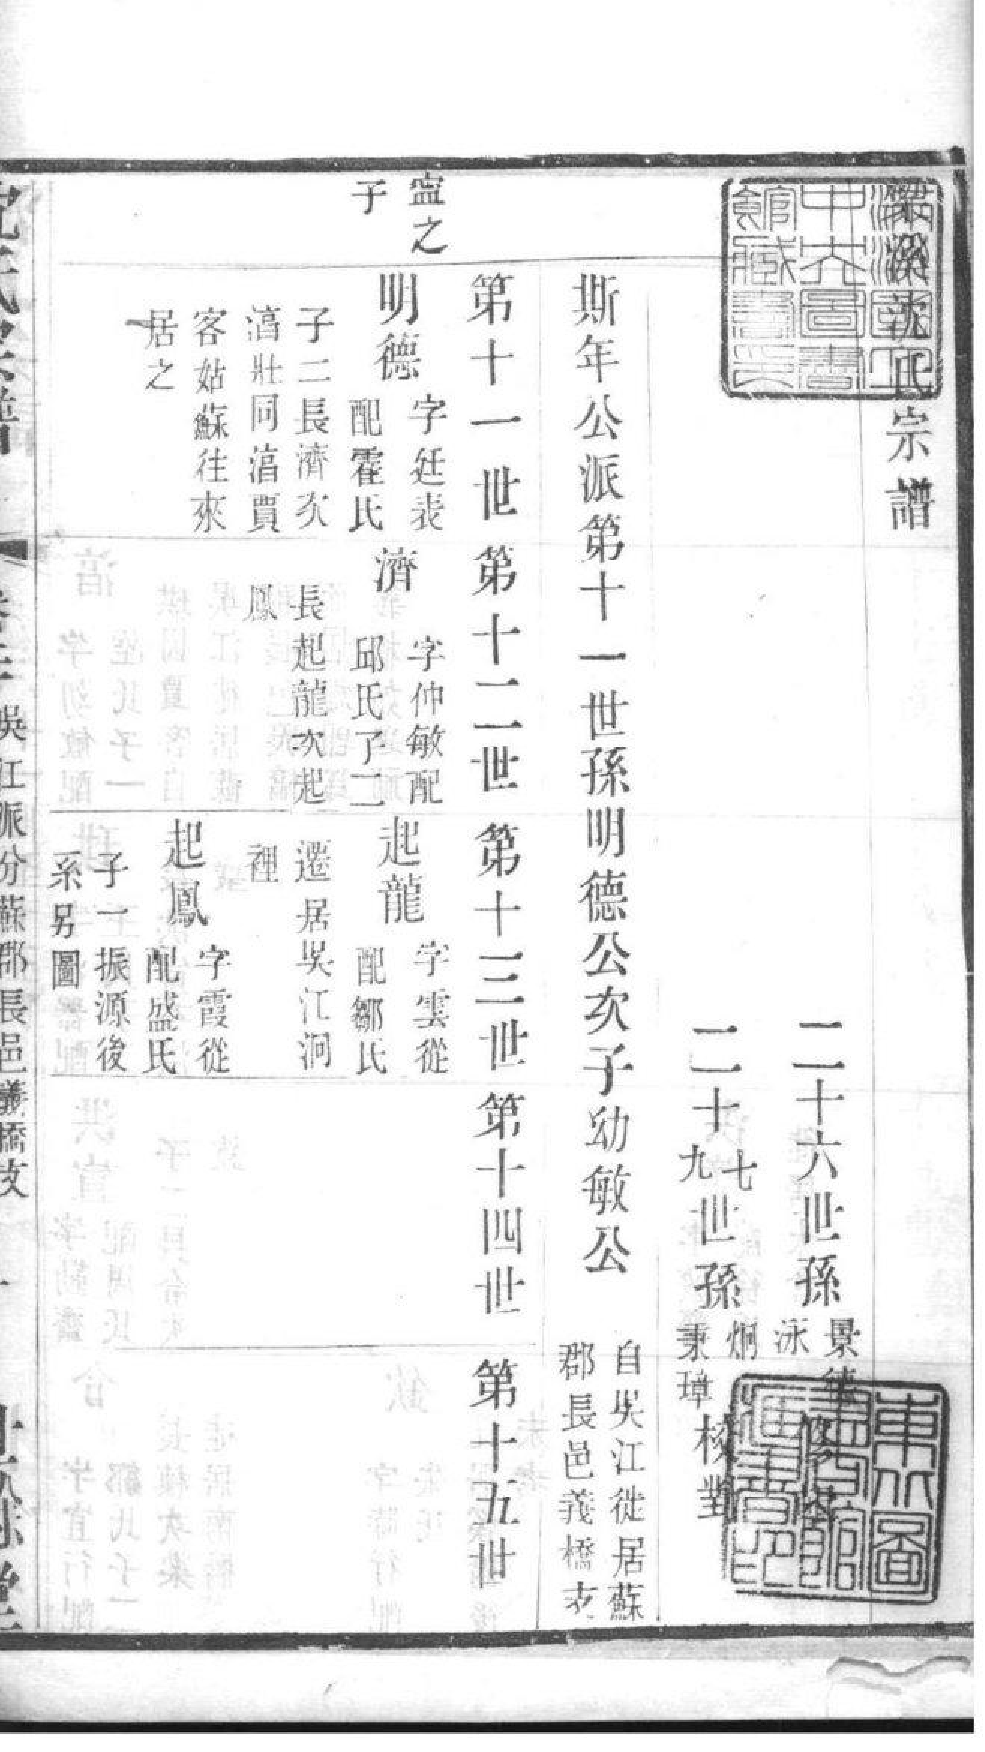 梁溪沈氏宗譜
二十六世孫
景德
泳
二十九七世孫
炯
秉璋
核對
斯年公派第十一世孫明德公次子幼敏公
自吳江徙居蘇
郡長邑義橋支
第十一世
第十二世
第十三世
第十四世
第十五世
寍之
子
明德
字廷表
配霍氏
子二長濟次
湻壯同湻賈
客姑蘇往來
居之
濟
字仲敏配
邱氏子二
長起龍次起
鳳
起龍
字雲從
配鄒氏
遷居吳江洞
裡
起鳳
字霞從
配盛氏
子一振源後
系另圖
沈氏宗譜
吳江派分蘇郡長邑義橋支